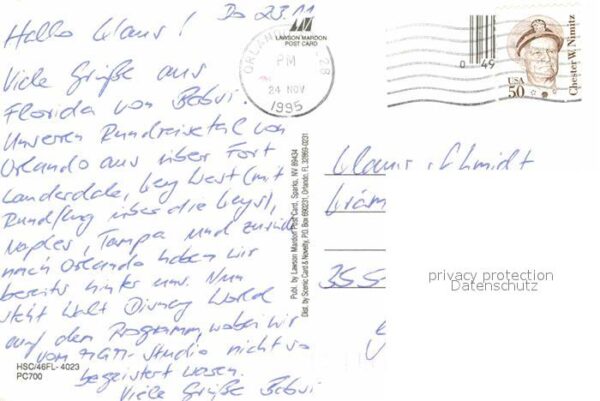 Do 23.11
Hallo Klaus!
Viele Grüße aus
Florida von Babsi.
Unseren Rundreisetal von
Orlando aus über Fort
Lauderdale, Key West (mit
Rundflug über die Keys),
Naples, Tampa und zurück
nach Orlando haben wir
bereits hinter uns. Nun
steht Walt Disney World
auf dem Programm, wobei wir
vom MGM-Studio nicht so
begeistert waren.
Viele Grüße Babsi
HSC/46FL- 4023
PC700
LAWSON MARDON
POST CARD
Publ. by Lawson Mardon Post Card, Sparks, NV 89434
Dist. by Scenic Card & Novelty, PO. Box 690231, Orlando, FL 32869-0231
ORLAN 328
PM
24 NOV
1995
0 49
USA
50
Chester W. Nimitz
Klaus Schmidt
355
privacy protection
Datenschutz